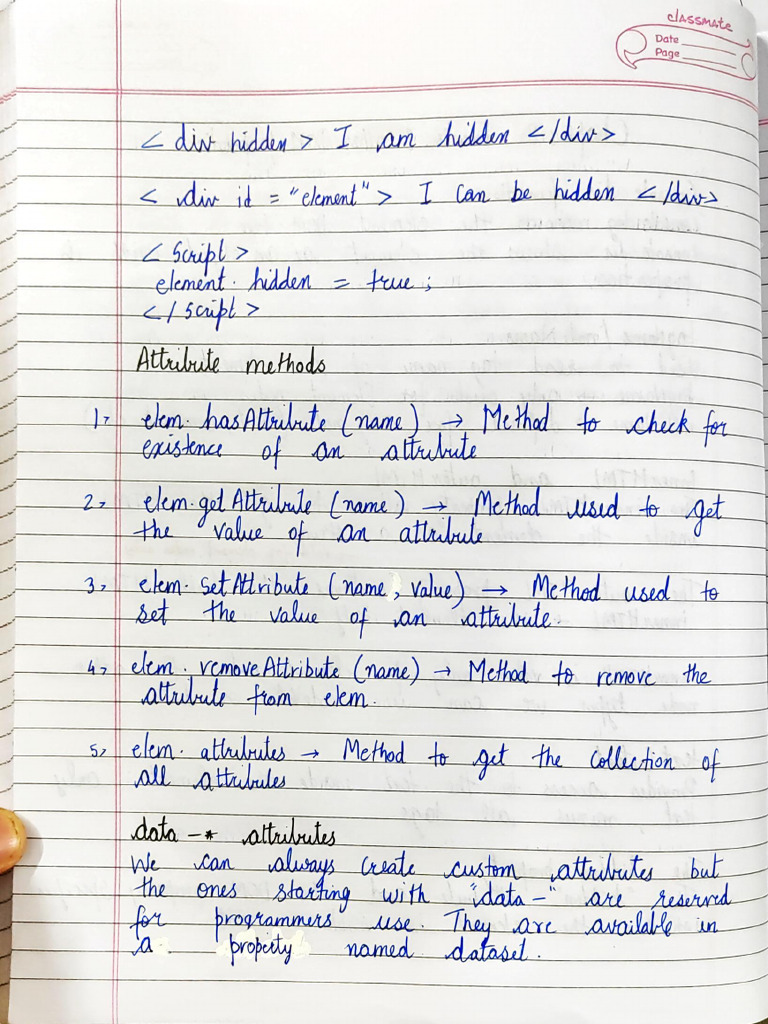 classmate
Date
Page
< div hidden > I am hidden </div>
< div id = "element" > I can be hidden </div>
< Script >
element. hidden = true ;
</ script >
Attribute methods
1> elem. hasAttribute (name) → Method to check for
existence of an attribute
2> elem.getAttribute (name) → Method used to get
the value of an attribute
3> elem. setAttribute (name, value) → Method used to
set the value of an attribute.
4> elem. removeAttribute (name) → Method to remove the
attribute from elem.
5> elem. attributes → Method to get the collection of
all attributes
data -* attributes
We can always create custom attributes but
the ones starting with "data-" are reserved
for programmers use. They are available in
a property named dataset.